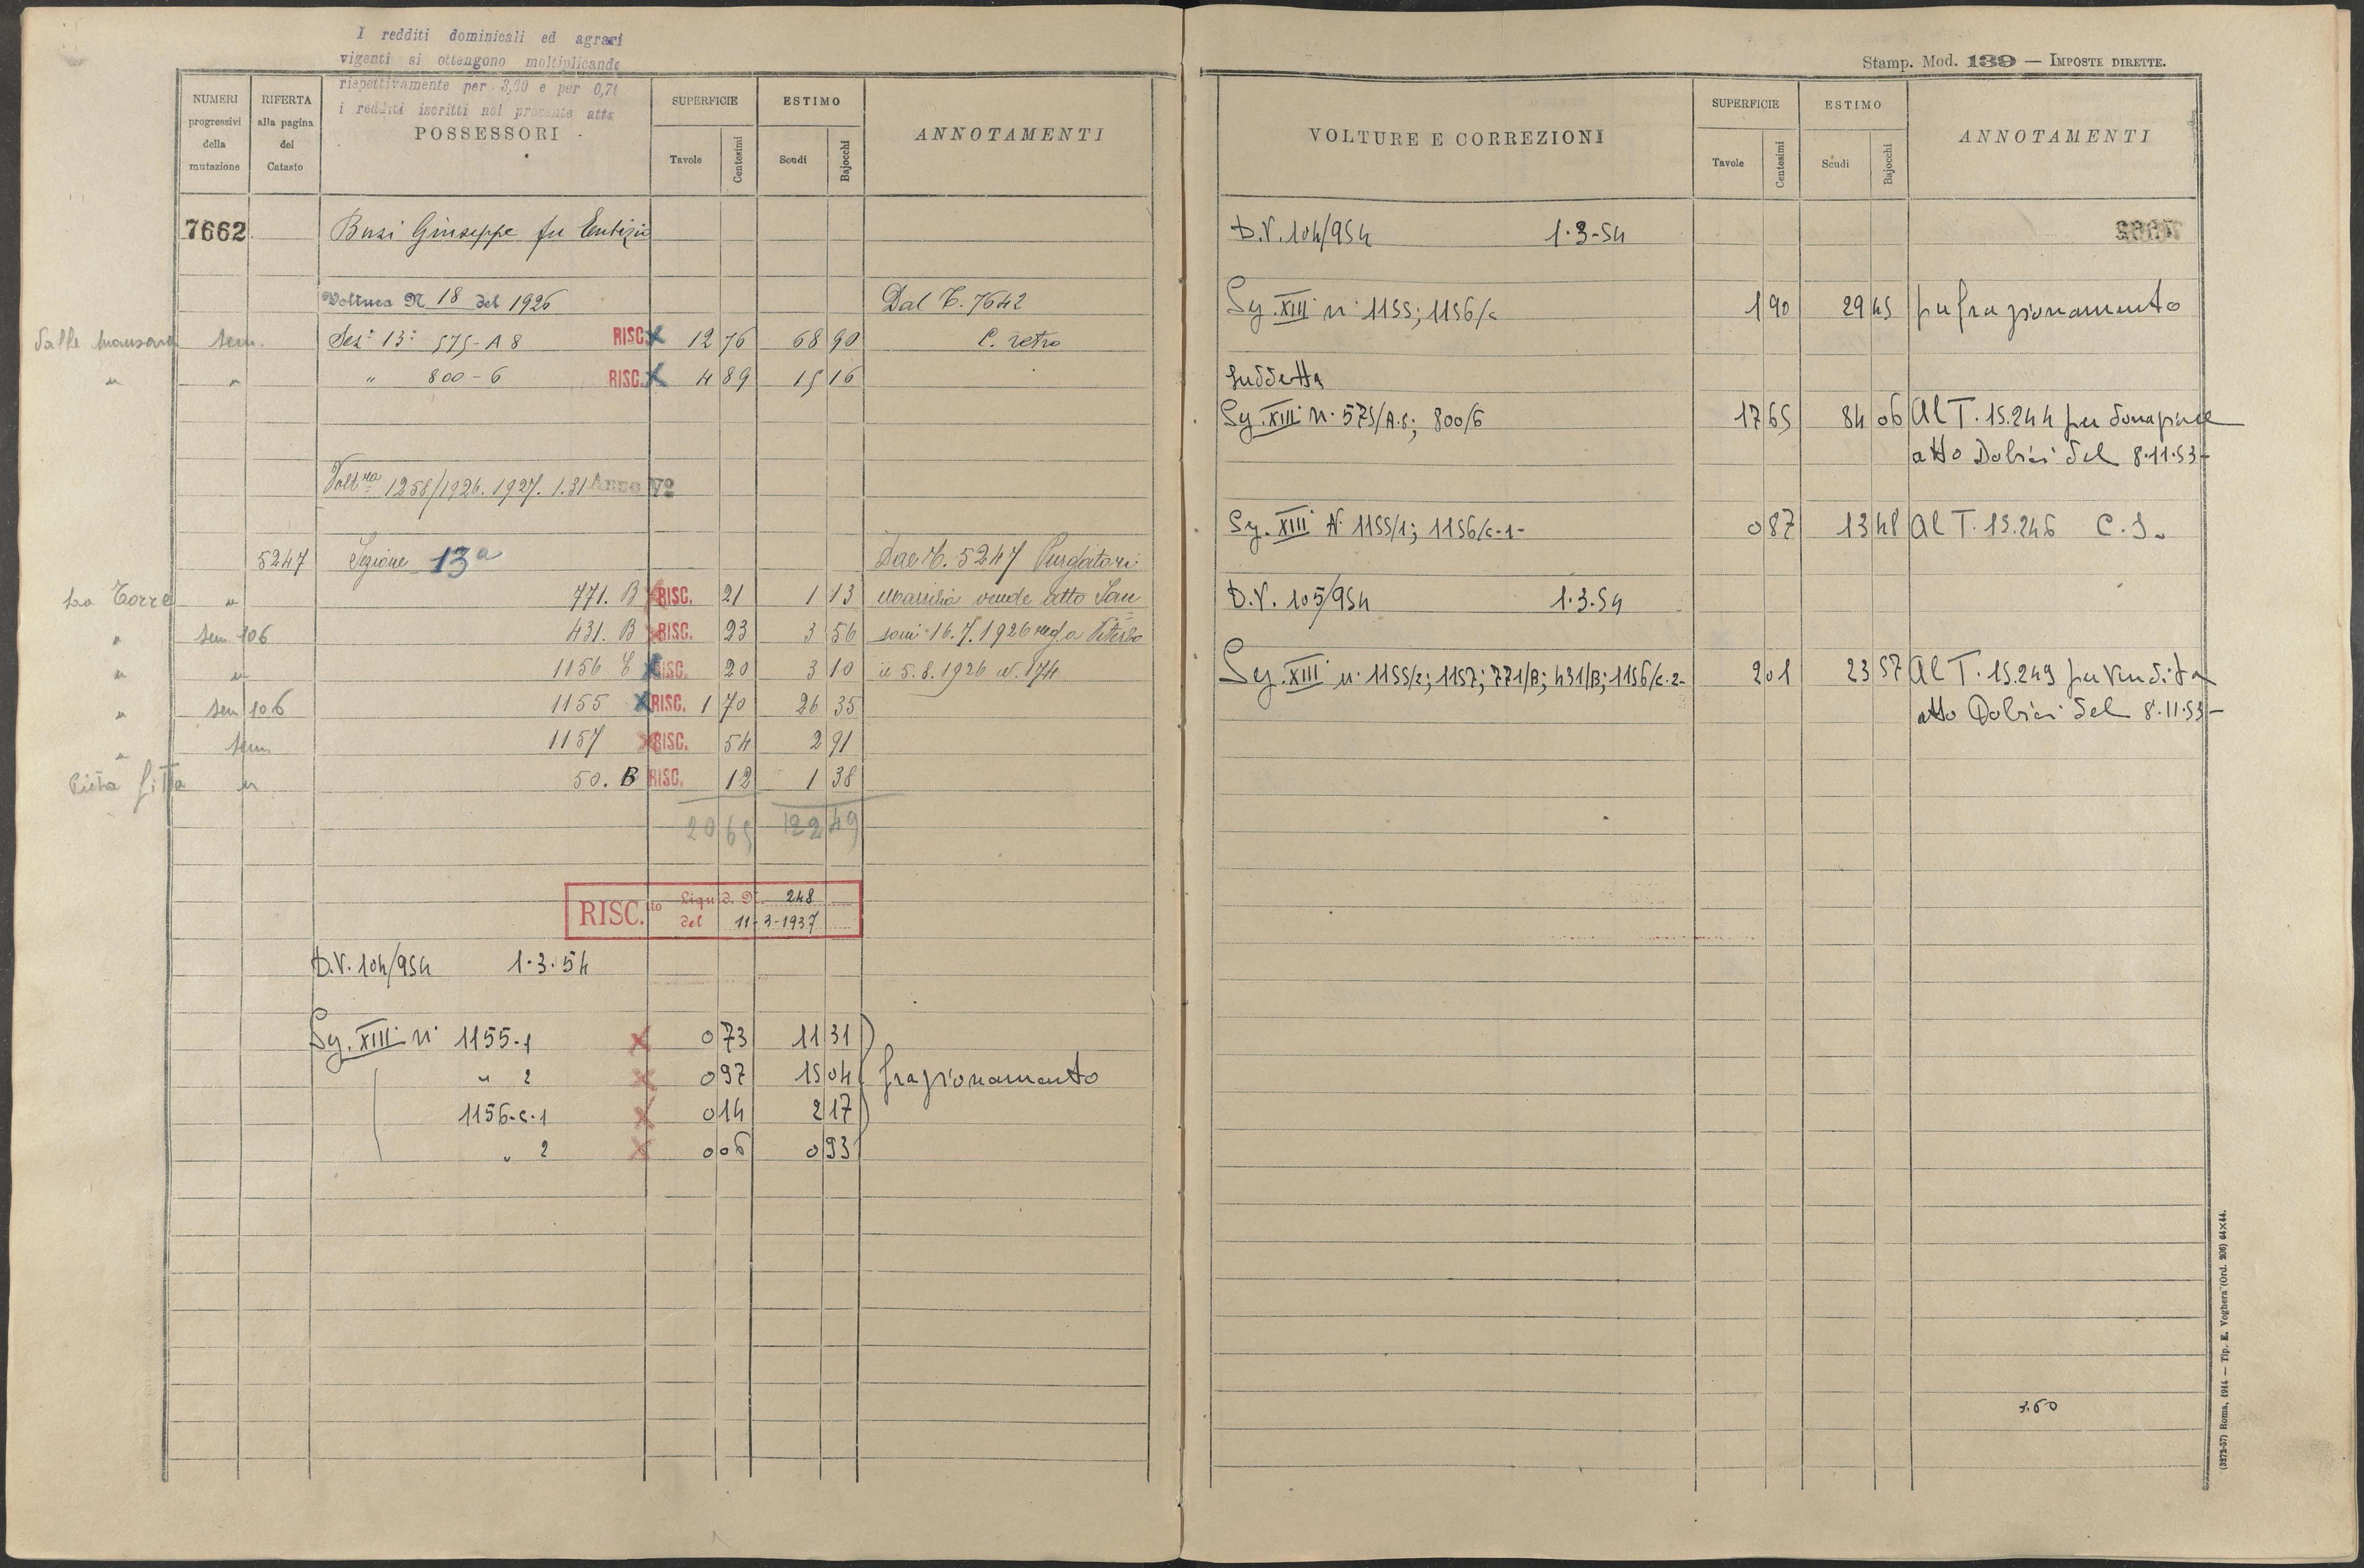 I redditi dominicali ed agrari
vigenti si ottengono moltiplicando
rispettivamente per 3,20 e per 0,71
i redditi iscritti nel presente atto
NUMERI progressivi della mutazione
RIFERTA alla pagina del Catasto
POSSESSORI
SUPERFICIE
Tavole Centesimi
ESTIMO
Scudi Bajocchi
ANNOTAMENTI
7662 Busi Giuseppe fu
Voltura N 18 del 1926 Dal T. 7642
Valle sem. Sez. 13a 575-A8 RISC. 12 76 68 90 C. retro
" " " 800-6 RISC. 4 89 15 16
Voltra 1258/1926.1927. 1.31 Anno Vo
5247 Sezione 13a Dal T. 5247 Purgatori
La Torre " 771. B RISC. 21 1 13 Marsilia vende atto San
" sem 106 431. B RISC. 23 3 56 soni 16.7.1926 reg. a Viterbo
" " 1156 C RISC. 20 3 10 il 5.8.1926 N. 174
" sem 106 1155 RISC. 1 70 26 35
" sem. 1157 RISC. 54 2 91
Pietra fitta " 50. B RISC. 12 1 38
20 65 122 49
RISC.to Liquid. N. 248
del 11-3-1937
D.V. 104/954 1.3.54
Sez. XIII n. 1155-1 0 73 11 31
" 2 0 97 15 04 frazionamento
1156-c-1 0 14 2 17
" 2 0 06 0 93
Stamp. Mod. 139 — IMPOSTE DIRETTE.
VOLTURE E CORREZIONI
SUPERFICIE
Tavole Centesimi
ESTIMO
Scudi Bajocchi
ANNOTAMENTI
D.V. 104/954 1.3-54 7662
Sez. XIII n. 1155; 1156/c 1 90 29 45 per frazionamento
suddetta
Sez. XIII n. 575/A.8; 800/6 17 65 84 06 Al T. 15.244 per donazione
atto Dobrici del 8.11.53-
Sez. XIII N. 1155/1; 1156/c-1- 0 87 13 48 Al T. 15.246 C.S.
D.V. 105/954 1.3.54
Sez. XIII n. 1155/2; 1157; 771/B; 431/B; 1156/c.2- 2 01 23 57 Al T. 15.249 per vendita
atto Dobrici del 8.11.53-
(3272-57) Roma, 1914 — Tip. E. Voghera (Ord. 206) 64×44.